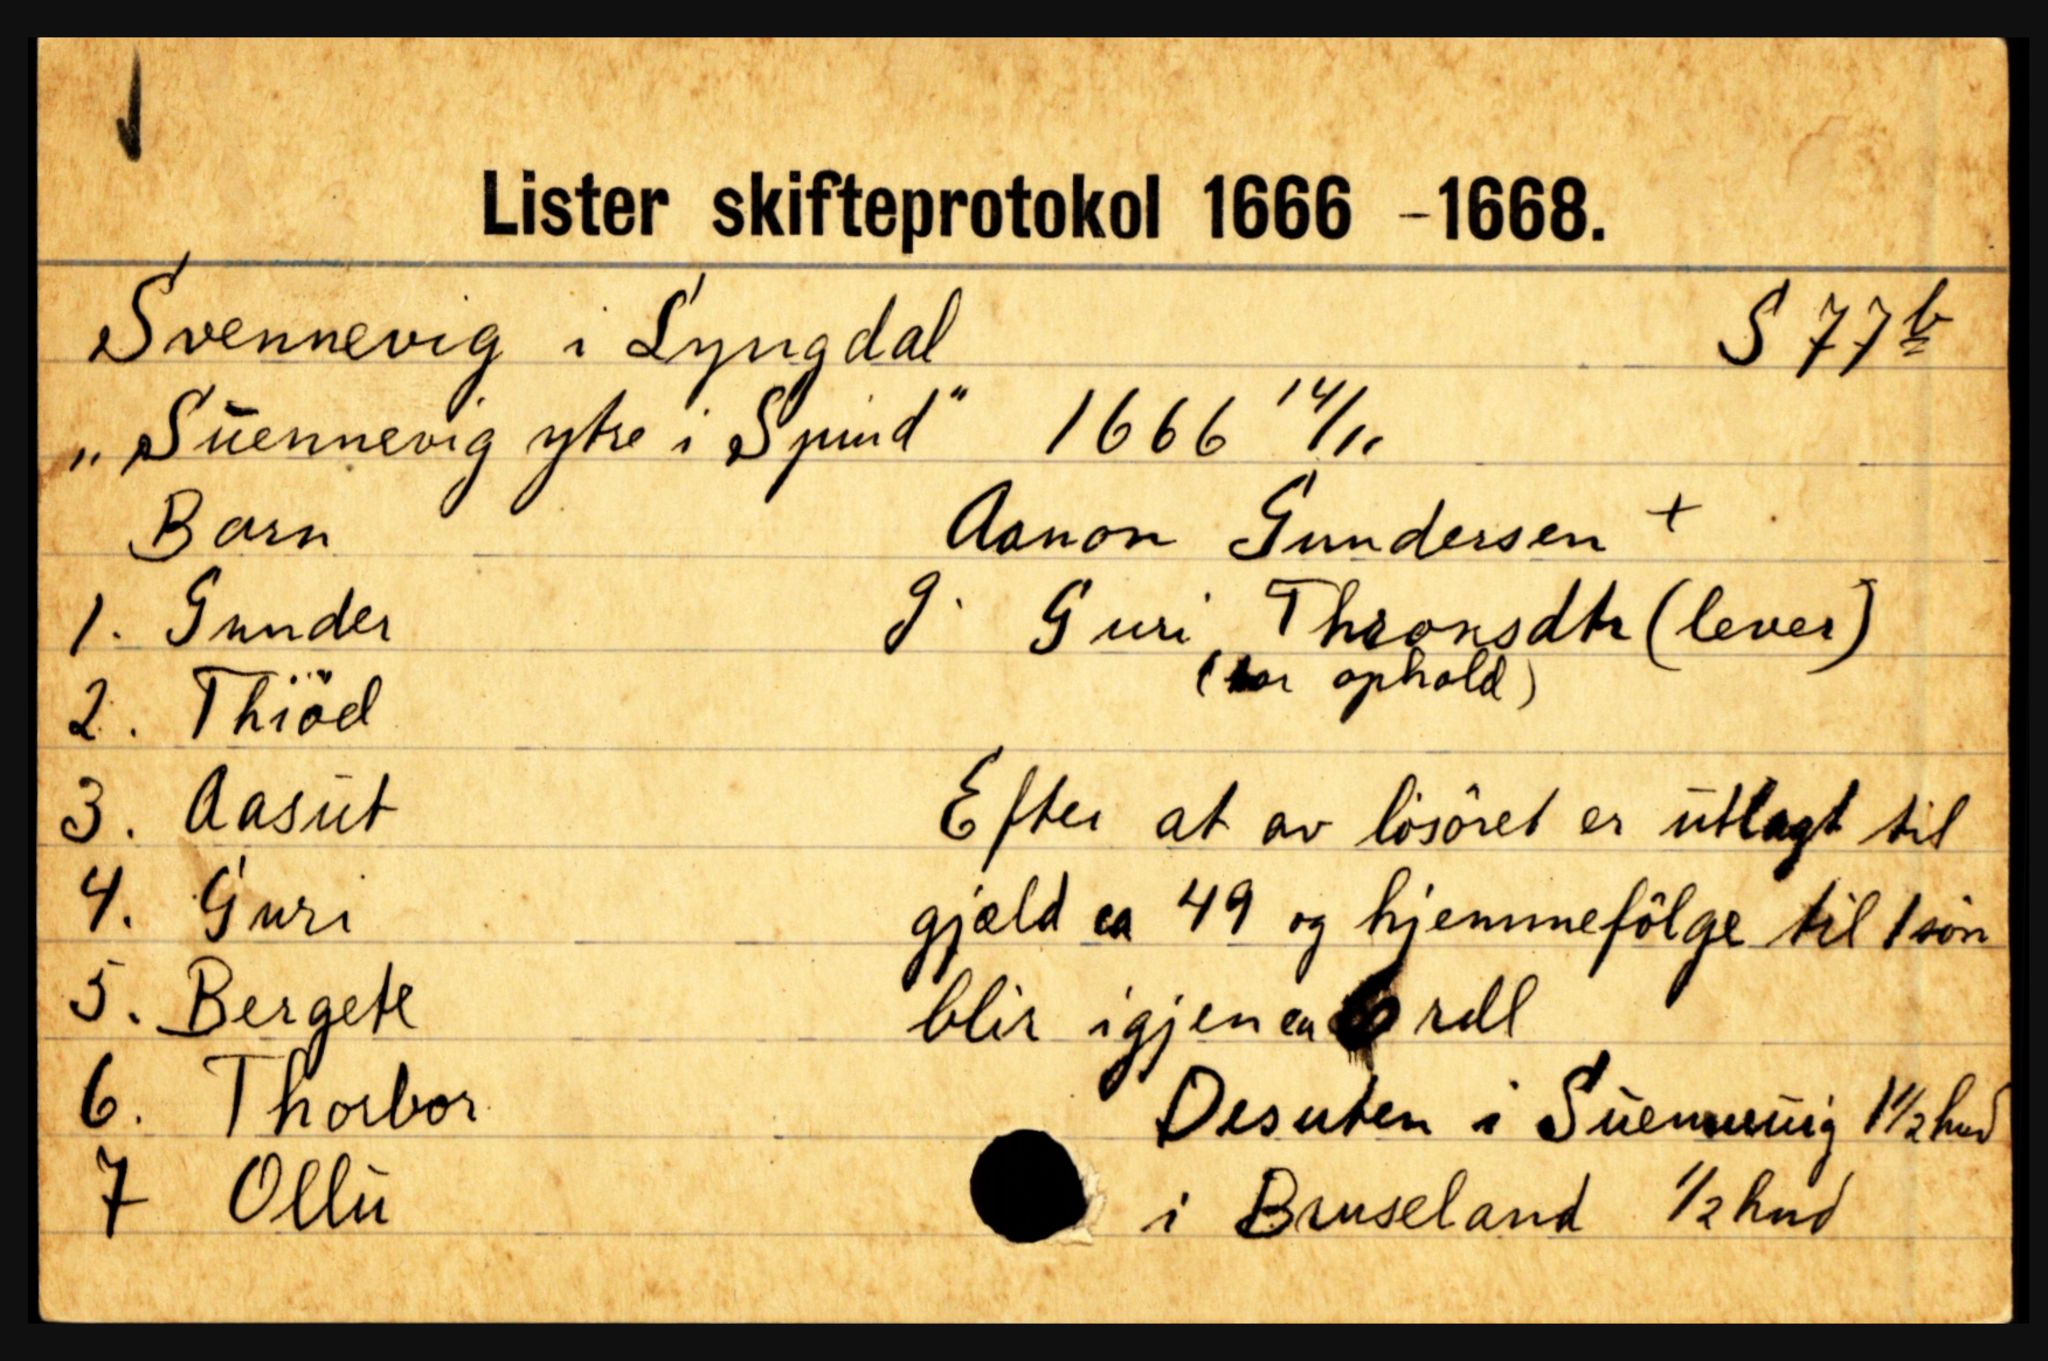 Lister skifteprotokol 1666 - 1668.
Svennevig i Lyngdal S 77b
„Süennevig ytre i Spind" 1666 14/11
Barn Aanon Gundersen +
1. Gunder g. Guri Thronsdtr (lever)
(har ophold)
2. Thiöd
3. Aasüt Efter at av lösöret er utlagt til
4. Guri gjæld ca 49 og hjemmefölge til 1 sön
5. Bergete blir igjen ca 6 rdl
6. Thorbor Desuten i Süennevig 1 1/2 hud
7 Ollu i Bruseland 1/2 hud